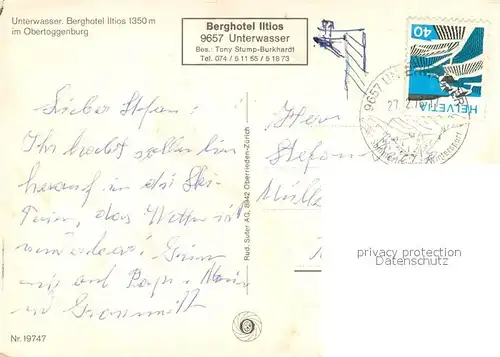 Unterwasser. Berghotel Iltios 1350 m
im Obertoggenburg
Berghotel Iltios
9657 Unterwasser
Bes.: Tony Stump-Burkhardt
Tel. 074 / 5 11 55 / 5 18 73
HELVETIA 40
9657 UNTERWASSER
27.2.
Wintersport
Lieber Stefan!
Ihr hättet sollen
herauf in die Ski-
Ferien, das Wetter ist
wunderbar!
mir auf Papi + Mami
und Grossmutt
Herr
Stefan
Mülle
Rud. Suter AG, 8942 Oberrieden-Zürich
privacy protection
Datenschutz
Nr. 19747